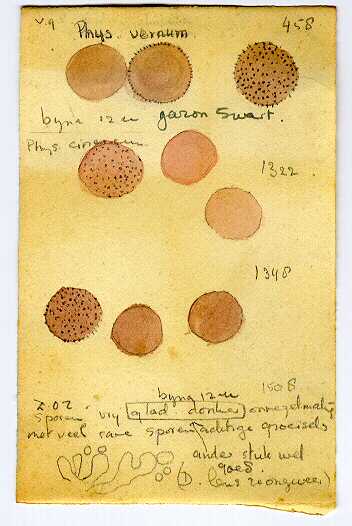 v.g 458
Phys. vernum
byna 12 u gazon Swart.
Phys. cinereum
1322
1348
byna 12 u 1508
Z.O.Z. sporen vry glad donker onregelmatig
met veel rare sporenachtige groeisels
ander stuk wel
goed.